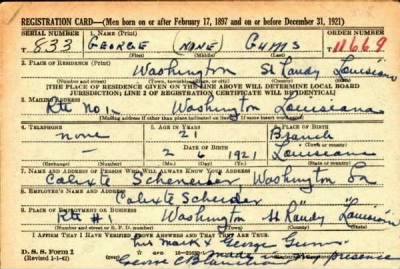 REGISTRATION CARD—(Men born on or after February 17, 1897 and on or before December 31, 1921)
SERIAL NUMBER 1. NAME (Print) ORDER NUMBER
T 833 GEORGE (NONE) GUMS 11669
(First) (Middle) (Last)
2. PLACE OF RESIDENCE (Print)
Washington St Landy Louisiana
(Number and street) (Town, township, village, or city) (County) (State)
[THE PLACE OF RESIDENCE GIVEN ON THE LINE ABOVE WILL DETERMINE LOCAL BOARD
JURISDICTION; LINE 2 OF REGISTRATION CERTIFICATE WILL BE IDENTICAL]
3. MAILING ADDRESS
Rte No. 1 Washington Louisiana
(Mailing address if other than place indicated on line 2. If same, insert word same)
4. TELEPHONE 5. AGE IN YEARS 6. PLACE OF BIRTH
none 21 Branch
DATE OF BIRTH (Town or county)
— 2 6 1921 Louisiana
(Exchange) (Number) (Mo.) (Day) (Yr.) (State or country)
7. NAME AND ADDRESS OF PERSON WHO WILL ALWAYS KNOW YOUR ADDRESS
Washington La
8. EMPLOYER'S NAME AND ADDRESS
9. PLACE OF EMPLOYMENT OR BUSINESS
Rte # 1 Washington St Landy Louisiana
(Number and street or R. F. D. number) (Town) (County) (State)
I AFFIRM THAT I HAVE VERIFIED ABOVE ANSWERS AND THAT THEY ARE TRUE.
his mark x George Gums
D. S. S. Form 1 made in my presence
(Revised 1-1-42) George C